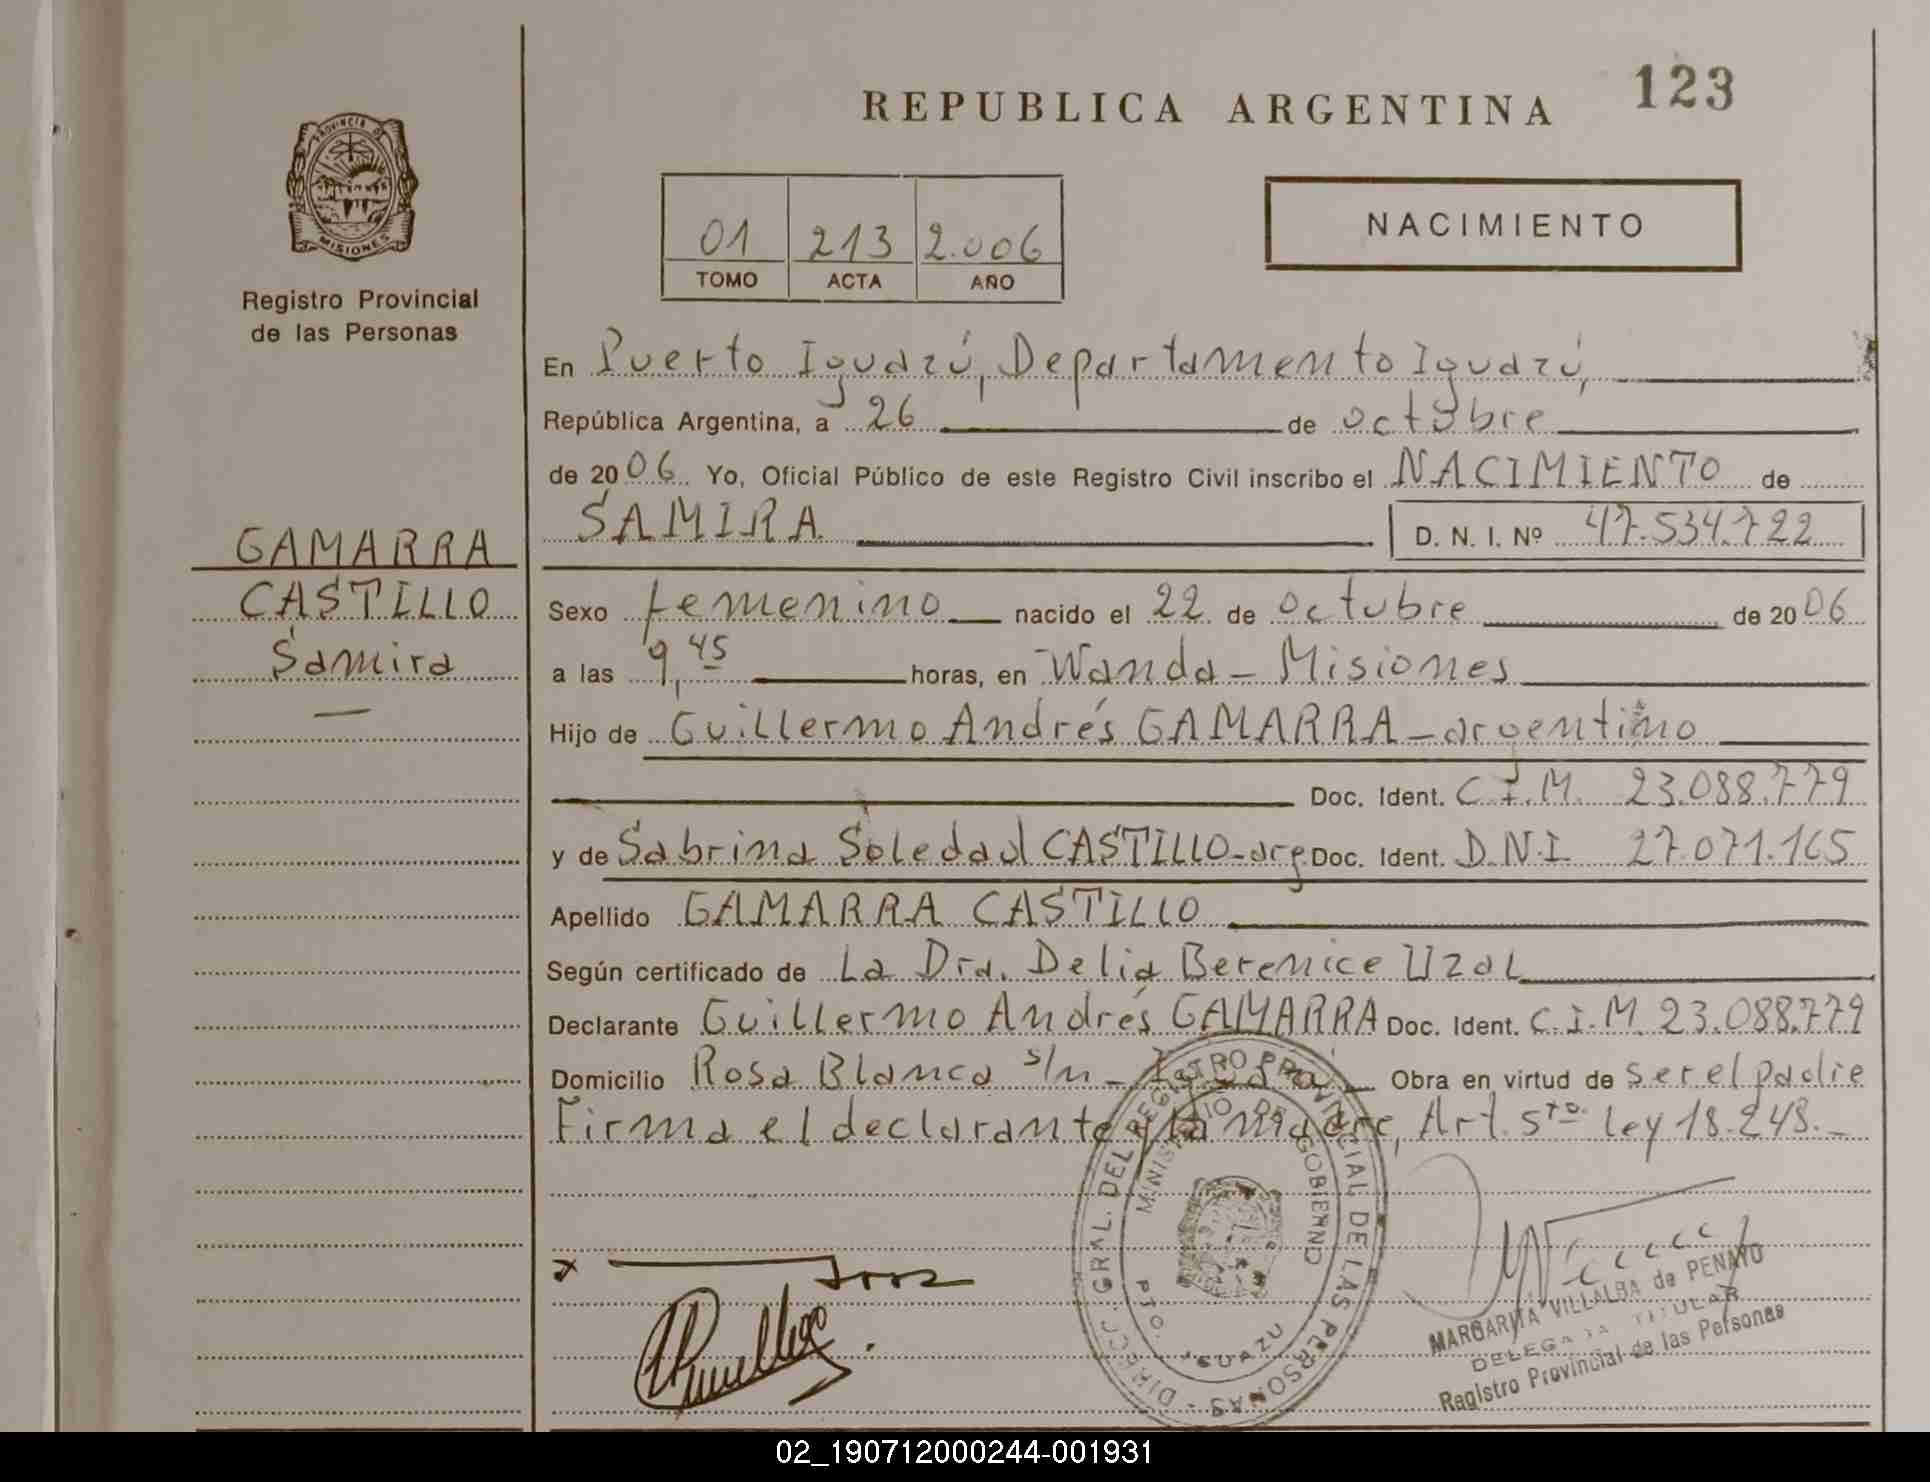 REPUBLICA ARGENTINA
123
PROVINCIA DE
MISIONES
Registro Provincial
de las Personas
01 213 2.006
TOMO ACTA AÑO
NACIMIENTO
En Puerto Iguazú, Departamento Iguazú,
República Argentina, a 26 de octubre
de 2006 Yo, Oficial Público de este Registro Civil inscribo el NACIMIENTO de
SAMIRA D. N. I. Nº 47.534.722
GAMARRA
CASTILLO
Samira
Sexo femenino nacido el 22 de octubre de 2006
a las 9,45 horas, en Wanda - Misiones
Hijo de Guillermo Andrés GAMARRA - argentino
Doc. Ident. C.I.M. 23.088.779
y de Sabrina Soledad CASTILLO - arg Doc. Ident. D.N.I. 27.071.165
Apellido GAMARRA CASTILLO
Según certificado de La Dra. Delia Berenice Uzal
Declarante Guillermo Andrés GAMARRA Doc. Ident. C.I.M. 23.088.779
Domicilio Rosa Blanca s/n - Obra en virtud de ser el padre
Firma el declarante y la madre, Art. 5to ley 18.248.-
DIRECC. GRAL. DEL REGISTRO PROVINCIAL DE LAS PERSONAS
MINISTERIO DE GOBIERNO
PTO. IGUAZU
MARGARITA VILLALBA de PENAYO
DELEGADA TITULAR
Registro Provincial de las Personas
02_190712000244-001931